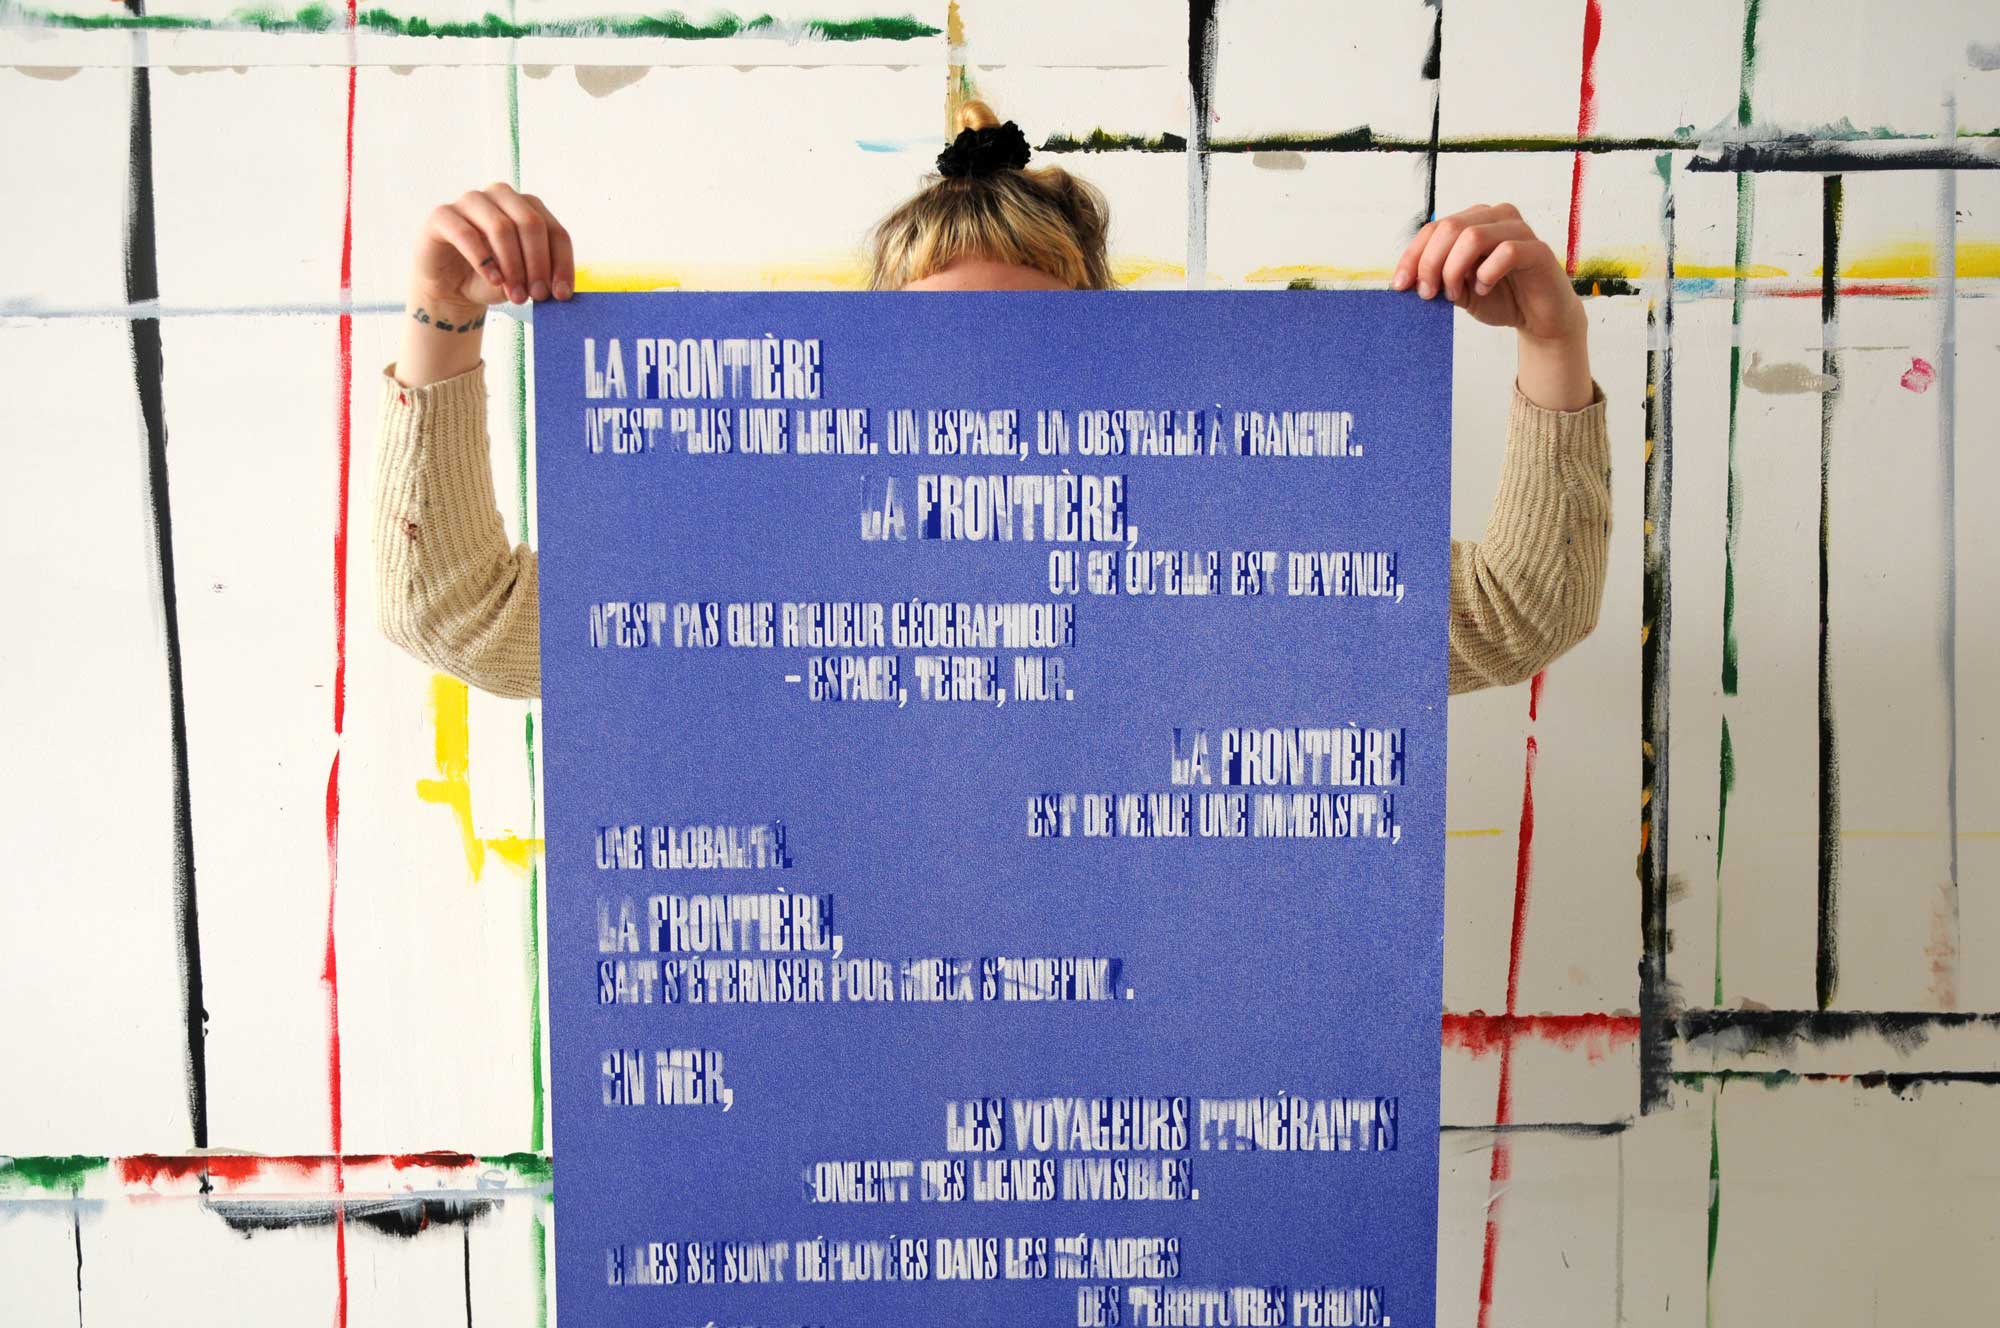 LA FRONTIÈRE
N'EST PLUS UNE LIGNE. UN ESPACE, UN OBSTACLE À FRANCHIR.
LA FRONTIÈRE,
OU CE QU'ELLE EST DEVENUE,
N'EST PAS QUE RIGUEUR GÉOGRAPHIQUE
– ESPACE, TERRE, MUR.
LA FRONTIÈRE
EST DEVENUE UNE IMMENSITÉ,
UNE GLOBALITÉ.
LA FRONTIÈRE,
SAIT S'ÉTERNISER POUR MIEUX S'INDÉFINIR.
EN MER,
LES VOYAGEURS ITINÉRANTS
LONGENT DES LIGNES INVISIBLES.
ELLES SE SONT DÉPLOYÉES DANS LES MÉANDRES
DES TERRITOIRES PERDUS.